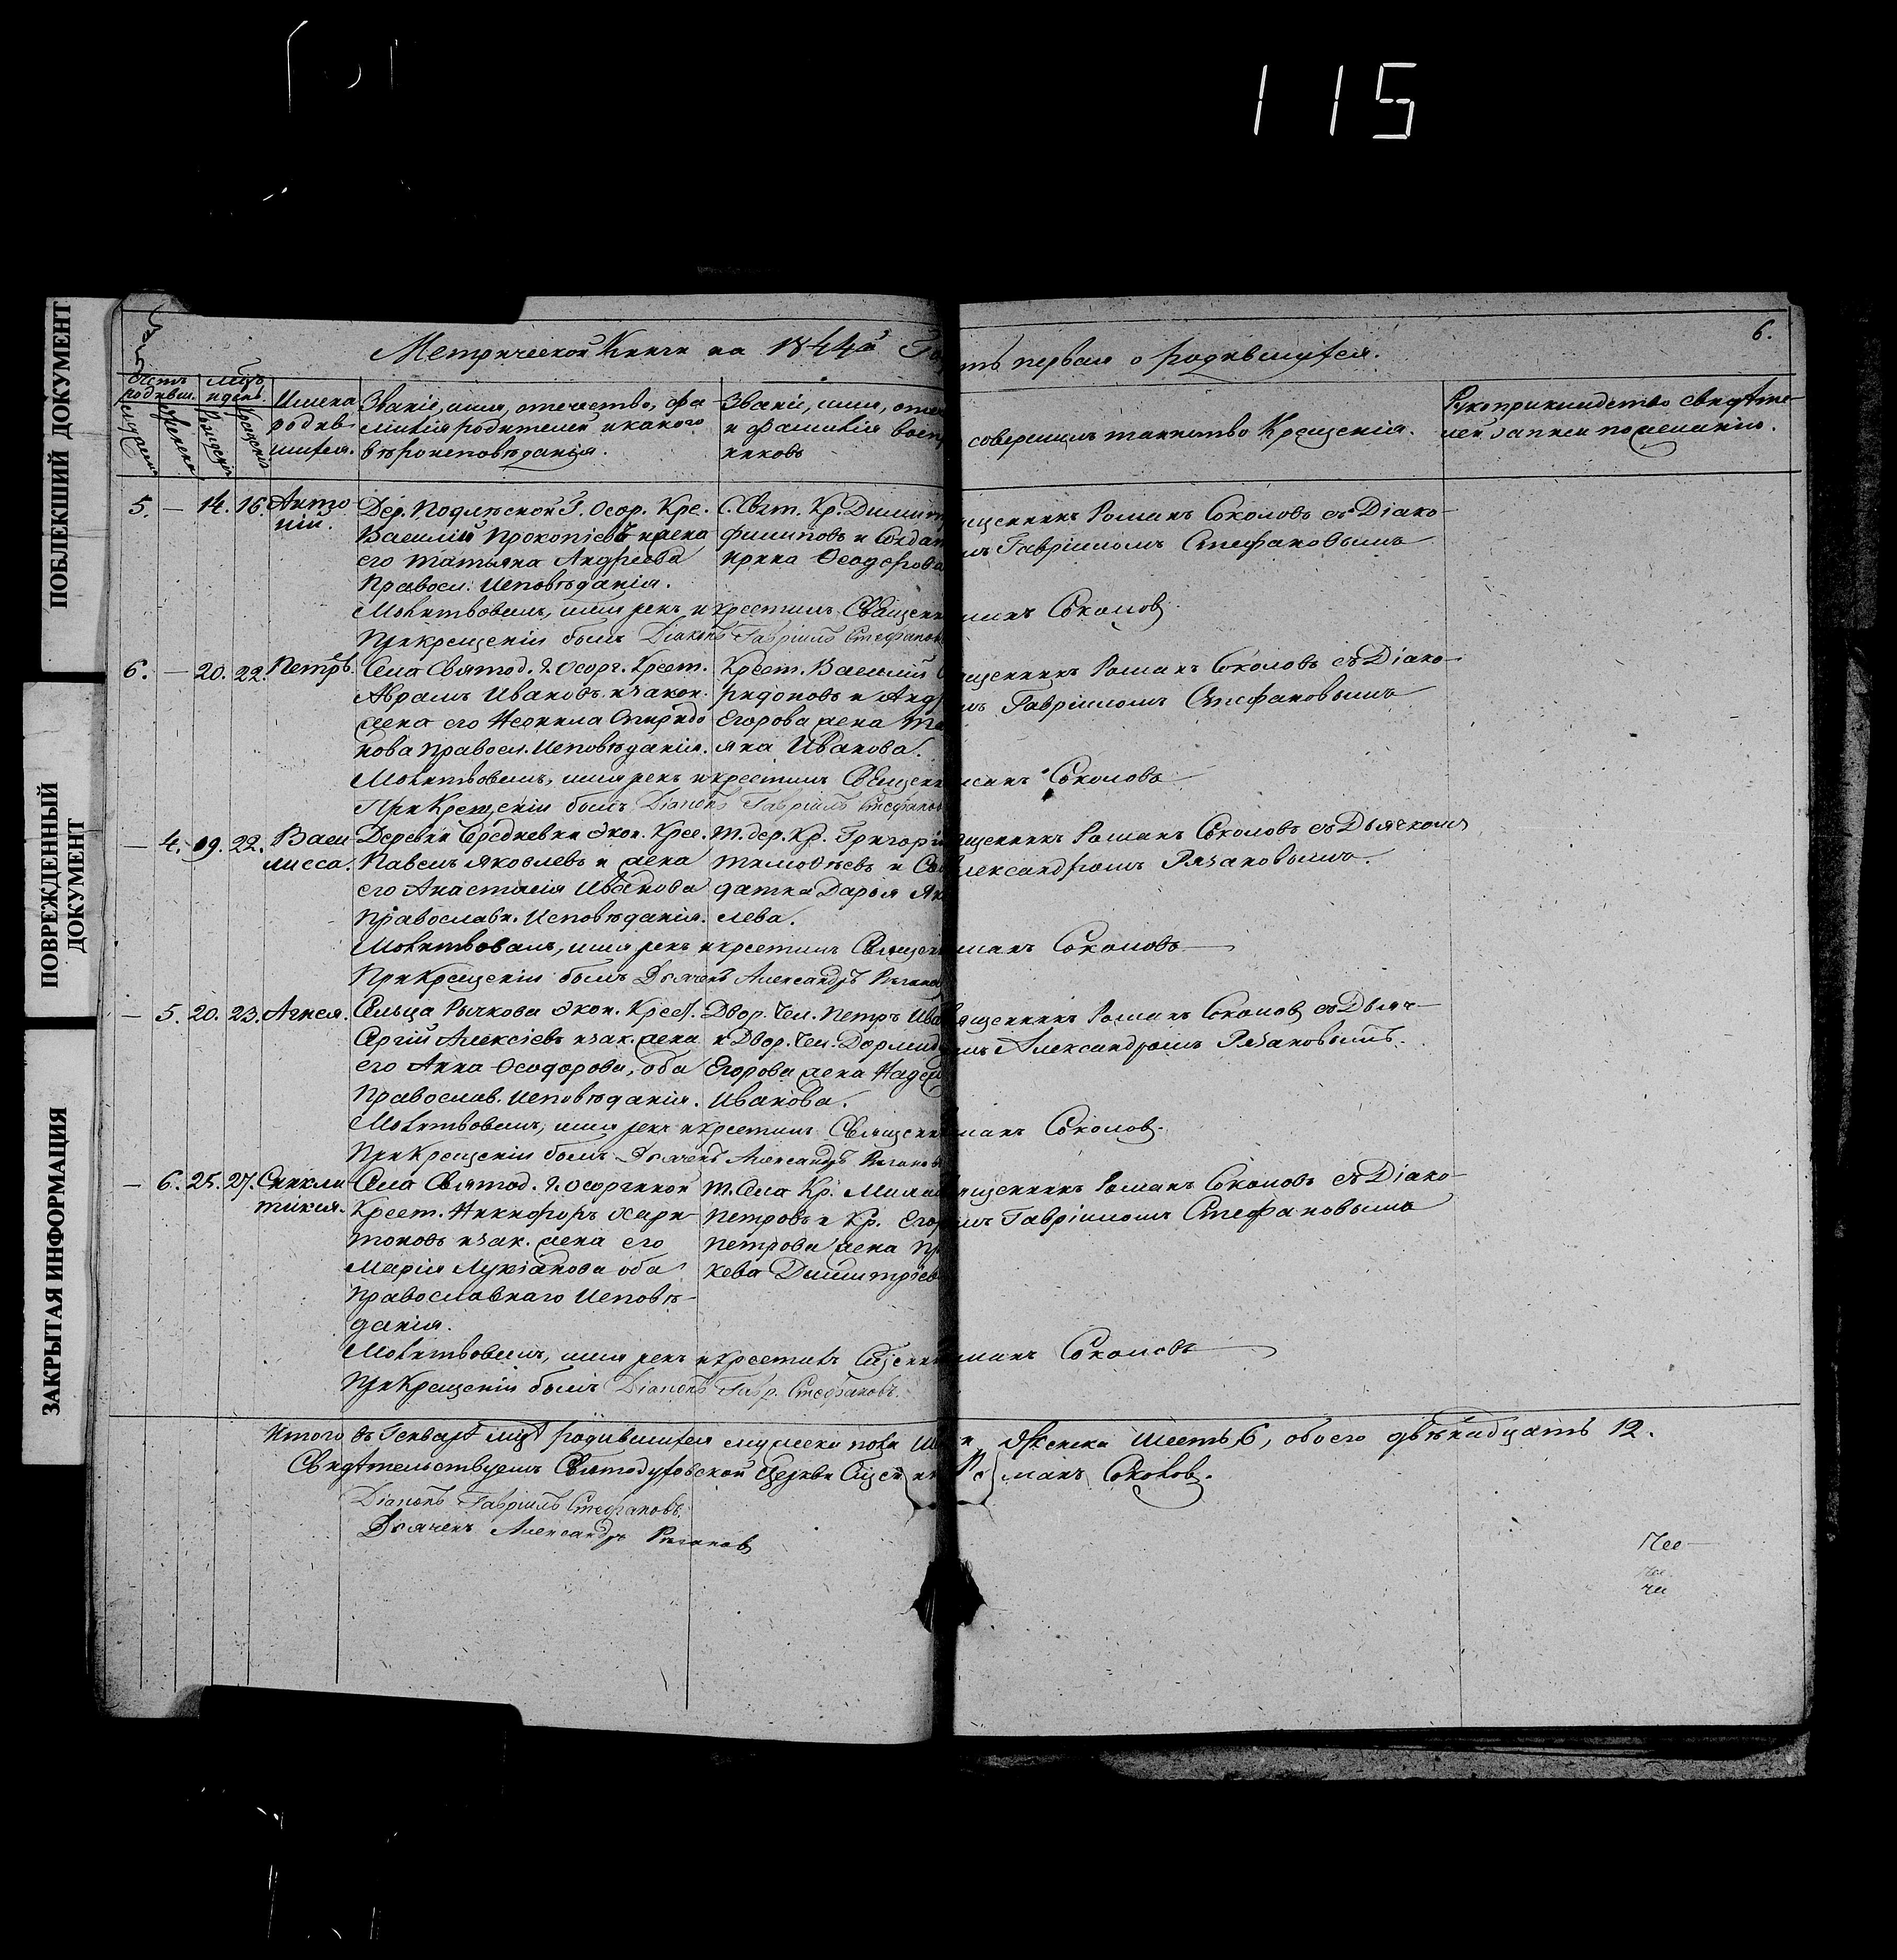 115
ПОБЛЕКШИЙ ДОКУМЕНТ
ПОВРЕЖДЕННЫЙ
ДОКУМЕНТ
ЗАКРЫТАЯ ИНФОРМАЦИЯ
6.
Метрической Книги на 1844й Го
ть первая о родившихся.
Счетъ родивш.
Мцъ и день
Имена
родив-
шихся.
Званіе, имя, отечество, фа-
милія родителей и какого
вѣроисповѣданія.
Званіе, имя, отеч
и Фамилія воспр
никовъ
совершилъ таинство Крещенія.
Рукоприкладство свидѣте-
лей записи по желанію.
5. — 14. 16. Анто
ній.
Дер. Подлѣсной Г. Осор. Кре.
Василій Прокопіевъ и жена
его Татьяна Андреева
Правосл: Исповѣданія.
С. Свят. Кр. Димит
Филиповъ и Солдат
Ирина Ѳеодорова
ященникъ Романъ Соколовъ съ Діако-
мъ Гавріиломъ Стефановымъ
Молитвовалъ, имя рекъ и крестилъ Священн
манъ Соколов
При крещеніи былъ Діаконъ Гавріилъ Стефанов
6. — 20. 22. Петръ.
Села Святод. Г. Осорг. Крест.
Абрамъ Ивановъ и закон.
жена его Неонила Спиридо
нова Правосл. Исповѣданія.
Крест. Василій С
ридоновъ и Анд
Егорова жена Та
яна Иванова.
ященникъ Романъ Соколовъ съ Діако-
мъ Гавріиломъ Стефановымъ
Молитвовалъ, имя рекъ и крестилъ Священн
манъ Соколовъ
При Крещеніи былъ Діаконъ Гавріилъ Стефанов
— 4. 19. 22. Васи
лисса.
Деревни Средневки Экон. Крес.
Павелъ Яковлевъ и жена
его Анастасія Иванова
Православн. Исповѣданія.
Т. дер. Кр. Григорі
Тимоѳѣевъ и Сол
датка Дарья Як
лева.
ященникъ Романъ Соколовъ съ Дьячкомъ
лександромъ Рязановымъ.
Молитвовалъ, имя рекъ и крестилъ Священ
манъ Соколовъ
При Крещеніи былъ Дьячекъ Александръ Рязанов
— 5. 20. 23. Агнея.
Сельца Рычкова Экон. Крест.
Сергій Алексіевъ и зак. жена
его Анна Ѳеодорова, оба
Православ. Исповѣданія.
Двор. Чел. Петръ Ива
и Двор. Чел. Дормид
Егорова жена Надеж
Иванова.
ященникъ Романъ Соколов съ Дьяч-
мъ Александромъ Рязановымъ.
Молитвовалъ, имя рекъ и крестилъ Священн
манъ Соколов.
При Крещеніи былъ Дьячекъ Александръ Рязанов
— 6. 25. 27. Синкли
тикія.
Села Святод. Г. Осоргиной
Крест. Никифоръ Хари
тоновъ и зак. жена его
Марія Лукіанова оба
Православнаго Исповѣ-
данія.
Т. Села Кр. Миха
Петровъ и Кр. Егор
Петрова жена Пр
кева Димитріев
ященникъ Романъ Соколовъ съ Діако-
мъ Гавріиломъ Стефановымъ
Молитвовалъ, имя рекъ и крестилъ Сщенн
манъ Соколовъ
При Крещеніи былъ Діаконъ Гавр. Стефановъ.
Итого въ Генварѣ мцѣ родившихся мужеска пола Ше
и Женска Шесть 6, обоего двѣнадцать 12.
Свидѣтельствуемъ Святодуховской Церкви Сщенникъ
Романъ Соколов.
Діаконъ Гавріилъ Стефановъ.
Дьячекъ Александръ Рязанов